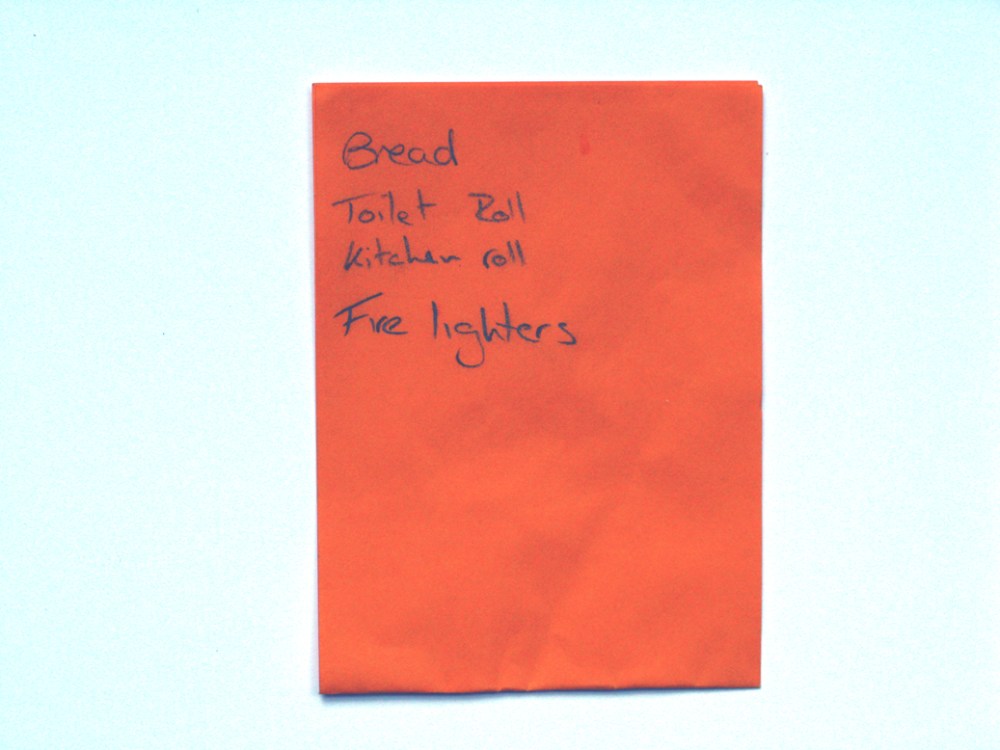 Bread
Toilet Roll
Kitchen roll
Fire lighters